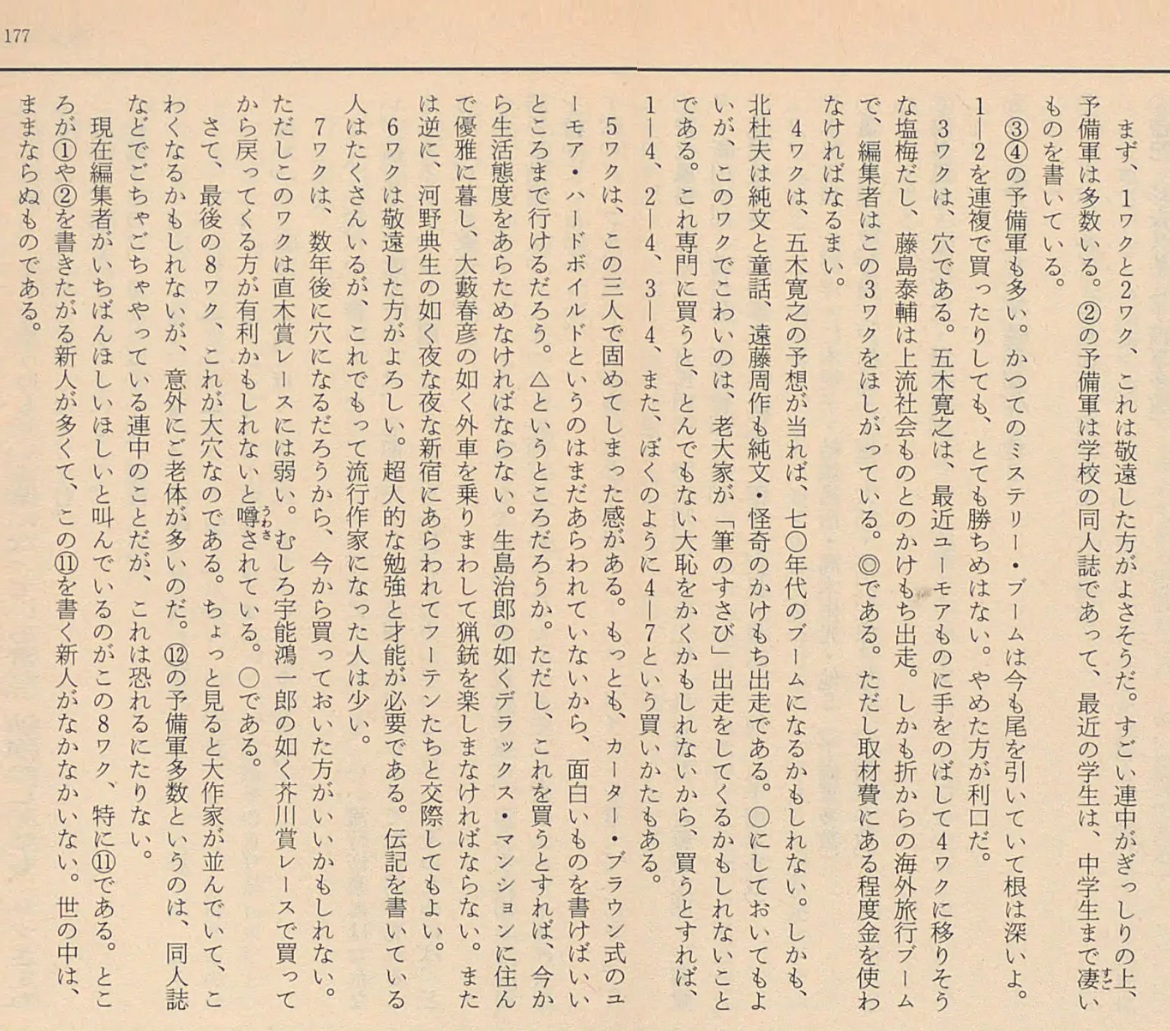 177
まず、1ワクと2ワク、これは敬遠した方がよさそうだ。すごい連中がぎっしりの上、
予備軍は多数いる。②の予備軍は学校の同人誌であって、最近の学生は、中学生まで凄い
ものを書いている。
③④の予備軍も多い。かつてのミステリー・ブームは今も尾を引いていて根は深いよ。
1―2を連複で買ったりしても、とても勝ちめはない。やめた方が利口だ。
3ワクは、穴である。五木寛之は、最近ユーモアものに手をのばして4ワクに移りそう
な塩梅だし、藤島泰輔は上流社会ものとのかけもち出走。しかも折からの海外旅行ブーム
で、編集者はこの3ワクをほしがっている。◎である。ただし取材費にある程度金を使わ
なければなるまい。
4ワクは、五木寛之の予想が当れば、七〇年代のブームになるかもしれない。しかも、
北杜夫は純文と童話、遠藤周作も純文・怪奇のかけもち出走である。〇にしておいてもよ
いが、このワクでこわいのは、老大家が「筆のすさび」出走をしてくるかもしれないこと
である。これ専門に買うと、とんでもない大恥をかくかもしれないから、買うとすれば、
1―4、2―4、3―4、また、ぼくのように4―7という買いかたもある。
5ワクは、この三人で固めてしまった感がある。もっとも、カーター・ブラウン式のユ
ーモア・ハードボイルドというのはまだあらわれていないから、面白いものを書けばいい
ところまで行けるだろう。△というところだろうか。ただし、これを買うとすれば、今か
ら生活態度をあらためなければならない。生島治郎の如くデラックス・マンションに住ん
で優雅に暮し、大藪春彦の如く外車を乗りまわして猟銃を楽しまなければならない。また
は逆に、河野典生の如く夜な夜な新宿にあらわれてフーテンたちと交際してもよい。
6ワクは敬遠した方がよろしい。超人的な勉強と才能が必要である。伝記を書いている
人はたくさんいるが、これでもって流行作家になった人は少い。
7ワクは、数年後に穴になるだろうから、今から買っておいた方がいいかもしれない。
ただしこのワクは直木賞レースには弱い。むしろ宇能鴻一郎の如く芥川賞レースで買って
から戻ってくる方が有利かもしれないと噂されている。〇である。
さて、最後の8ワク、これが大穴なのである。ちょっと見ると大作家が並んでいて、こ
わくなるかもしれないが、意外にご老体が多いのだ。⑫の予備軍多数というのは、同人誌
などでごちゃごちゃやっている連中のことだが、これは恐れるにたりない。
現在編集者がいちばんほしいほしいと叫んでいるのがこの8ワク、特に⑪である。とこ
ろが①や②を書きたがる新人が多くて、この⑪を書く新人がなかなかいない。世の中は、
ままならぬものである。